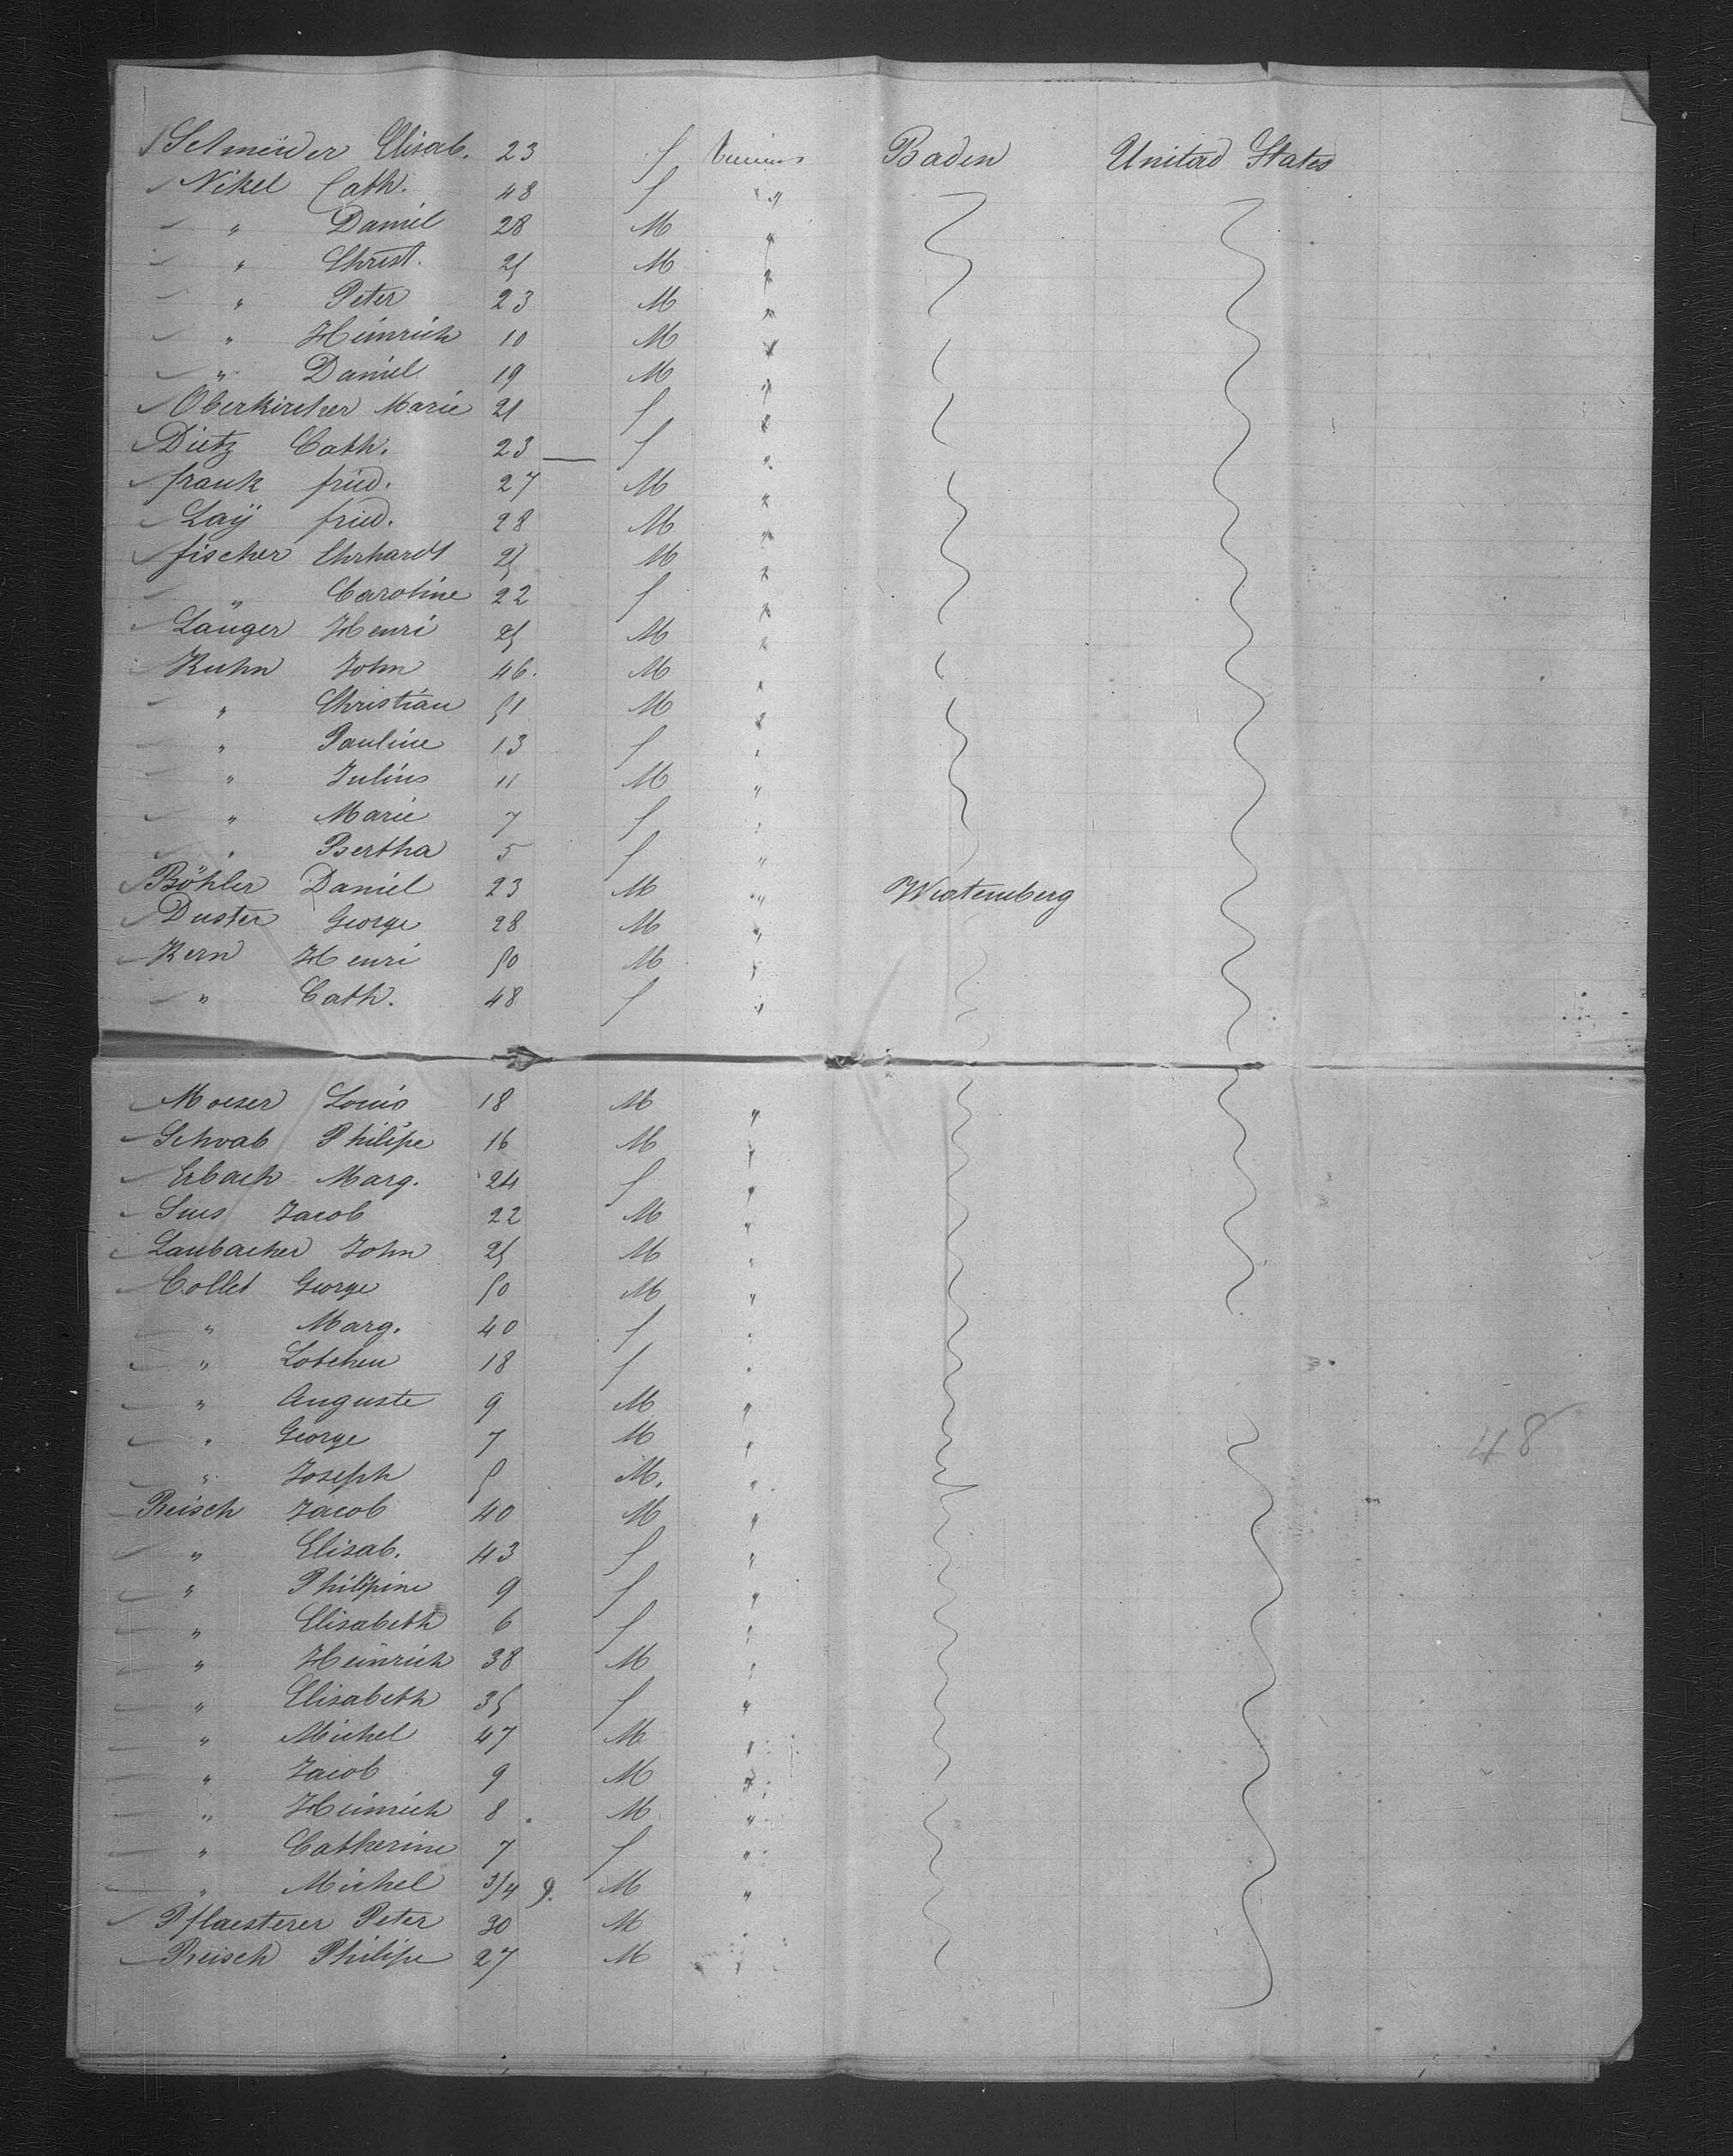 Schneider Elisab. 23 f Baden United States
Nikel Cath. 48 f "
" Daniel 28 M "
" Christ. 25 M "
" Peter 23 M "
" Heinrich 10 M "
" Daniel 19 M "
Oberkircher Marie 21 f "
Dietz Cath. 23 — f "
frank fried. 27 M "
Laÿ fried. 28 M "
fischer Ehrhardt 25 M "
" Caroline 22 f "
Langer Henri 25 M "
Kuhn John 46. M "
" Christian 51 M "
" Pauline 13 f "
" Julius 11 M "
" Marie 7 f "
" Bertha 5 f "
Böhler Daniel 23 M " Wurtemberg
Duster George 28 M "
Kern Henri 50 M "
" Cath. 48 f "
Moeser Louis 18 M "
Schwab Philipe 16 M "
Erbach Marg. 24 f "
Jacob 22 M "
Laubacher John 25 M "
Collet George 50 M "
" Marg. 40 f "
" Lotchen 18 f "
" Auguste 9 M "
" George 7 M "
" Joseph 5 M. "
Reisch Jacob 40 M "
" Elisab. 43 f "
" Philipine 9 f "
" Elisabeth 6 f "
" Heinrich 38 M "
" Elisabeth 35 f "
" Michel 47 M "
" Jacob 9 M "
" Heinrich 8 M "
" Catherine 7 f "
" Michel 3/4 M "
Pflaesterer Peter 30 M
Reisch Philipe 27 M "
48